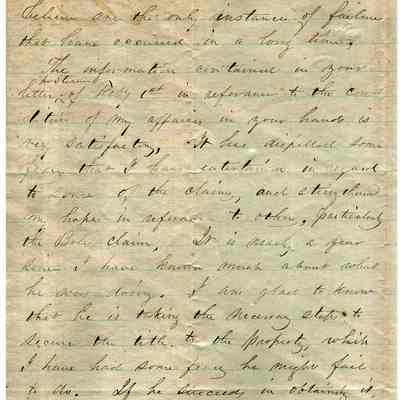 believe are the only instance of failure
that have occurred in a long time.
The information contained in your
letter, of Feby 1st in referance to the con
dition of my affairs in your hands is
very satisfactory, It has dispelled some
fears that I have entertained in regard
to some of the claims, and strengthened
my hope in referance to other, particularly
the claim, It is nearly a year
since I have known much about what
he was doing. I am glad to know
that he is taking the necessary steps to
secure the title to the Property, while
I have had some fears he might fail
to do. If he succeeds in obtaining it,